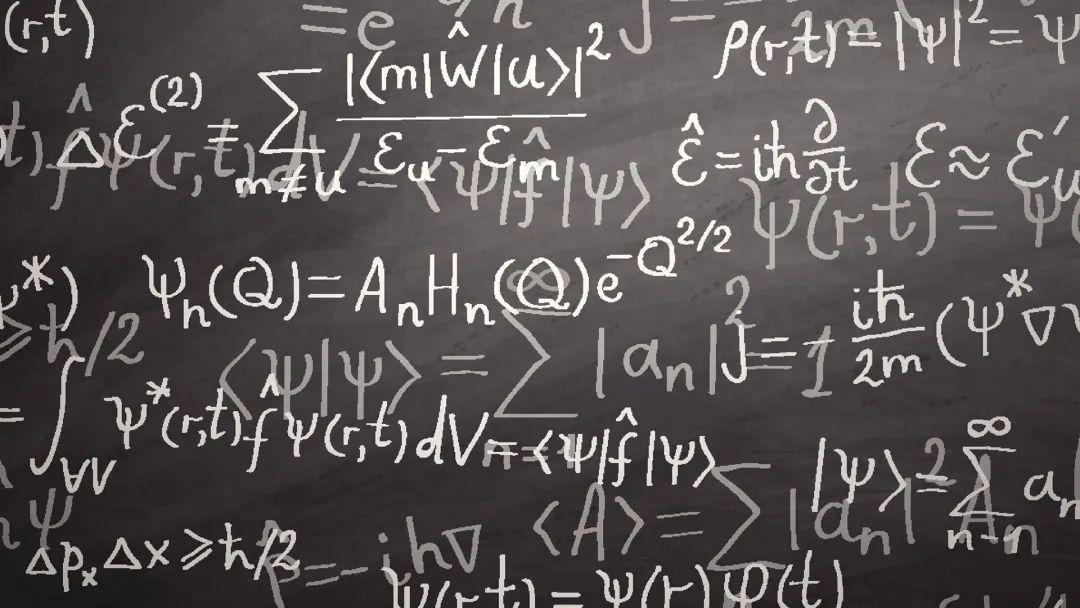 (r,t)
= e
ρ(r,t) = |Ψ|² = Ψ
ε⁽²⁾ = ∑ m≠u |⟨m|Ŵ|u⟩|² / εu − εm
ε̂ = iħ ∂/∂t
ε ≈ ε′u
= ⟨Ψ|f̂|Ψ⟩
Ψ(r,t) = Ψ(
Ψ*)
Ψn(Q) = AnHn(Q)e^−Q²/²
⩾ ħ/2
⟨Ψ|Ψ⟩ = ∑ n=1 ∞ |an|² = 1
J = iħ/2m (Ψ*∇Ψ
= ∫∀V Ψ*(r,t) f̂ Ψ(r,t) dV = ⟨Ψ|f̂|Ψ⟩
|Ψ⟩ = ∑ n=1 ∞ an
⟨A⟩ = ∑ |an|² An
Δpx Δx ⩾ ħ/2
p̂ = −iħ∇
Ψ(r,t) = Ψ(r) φ(t)